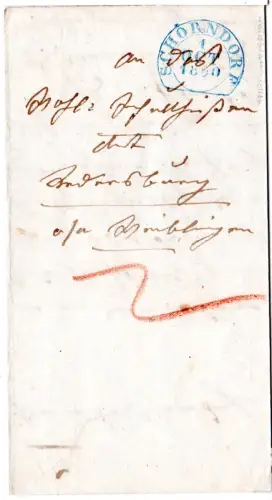 SCHORNDORF
1
OCT
1850
an das
Wohl: Schultheißen
Amt
a/a Waiblingen